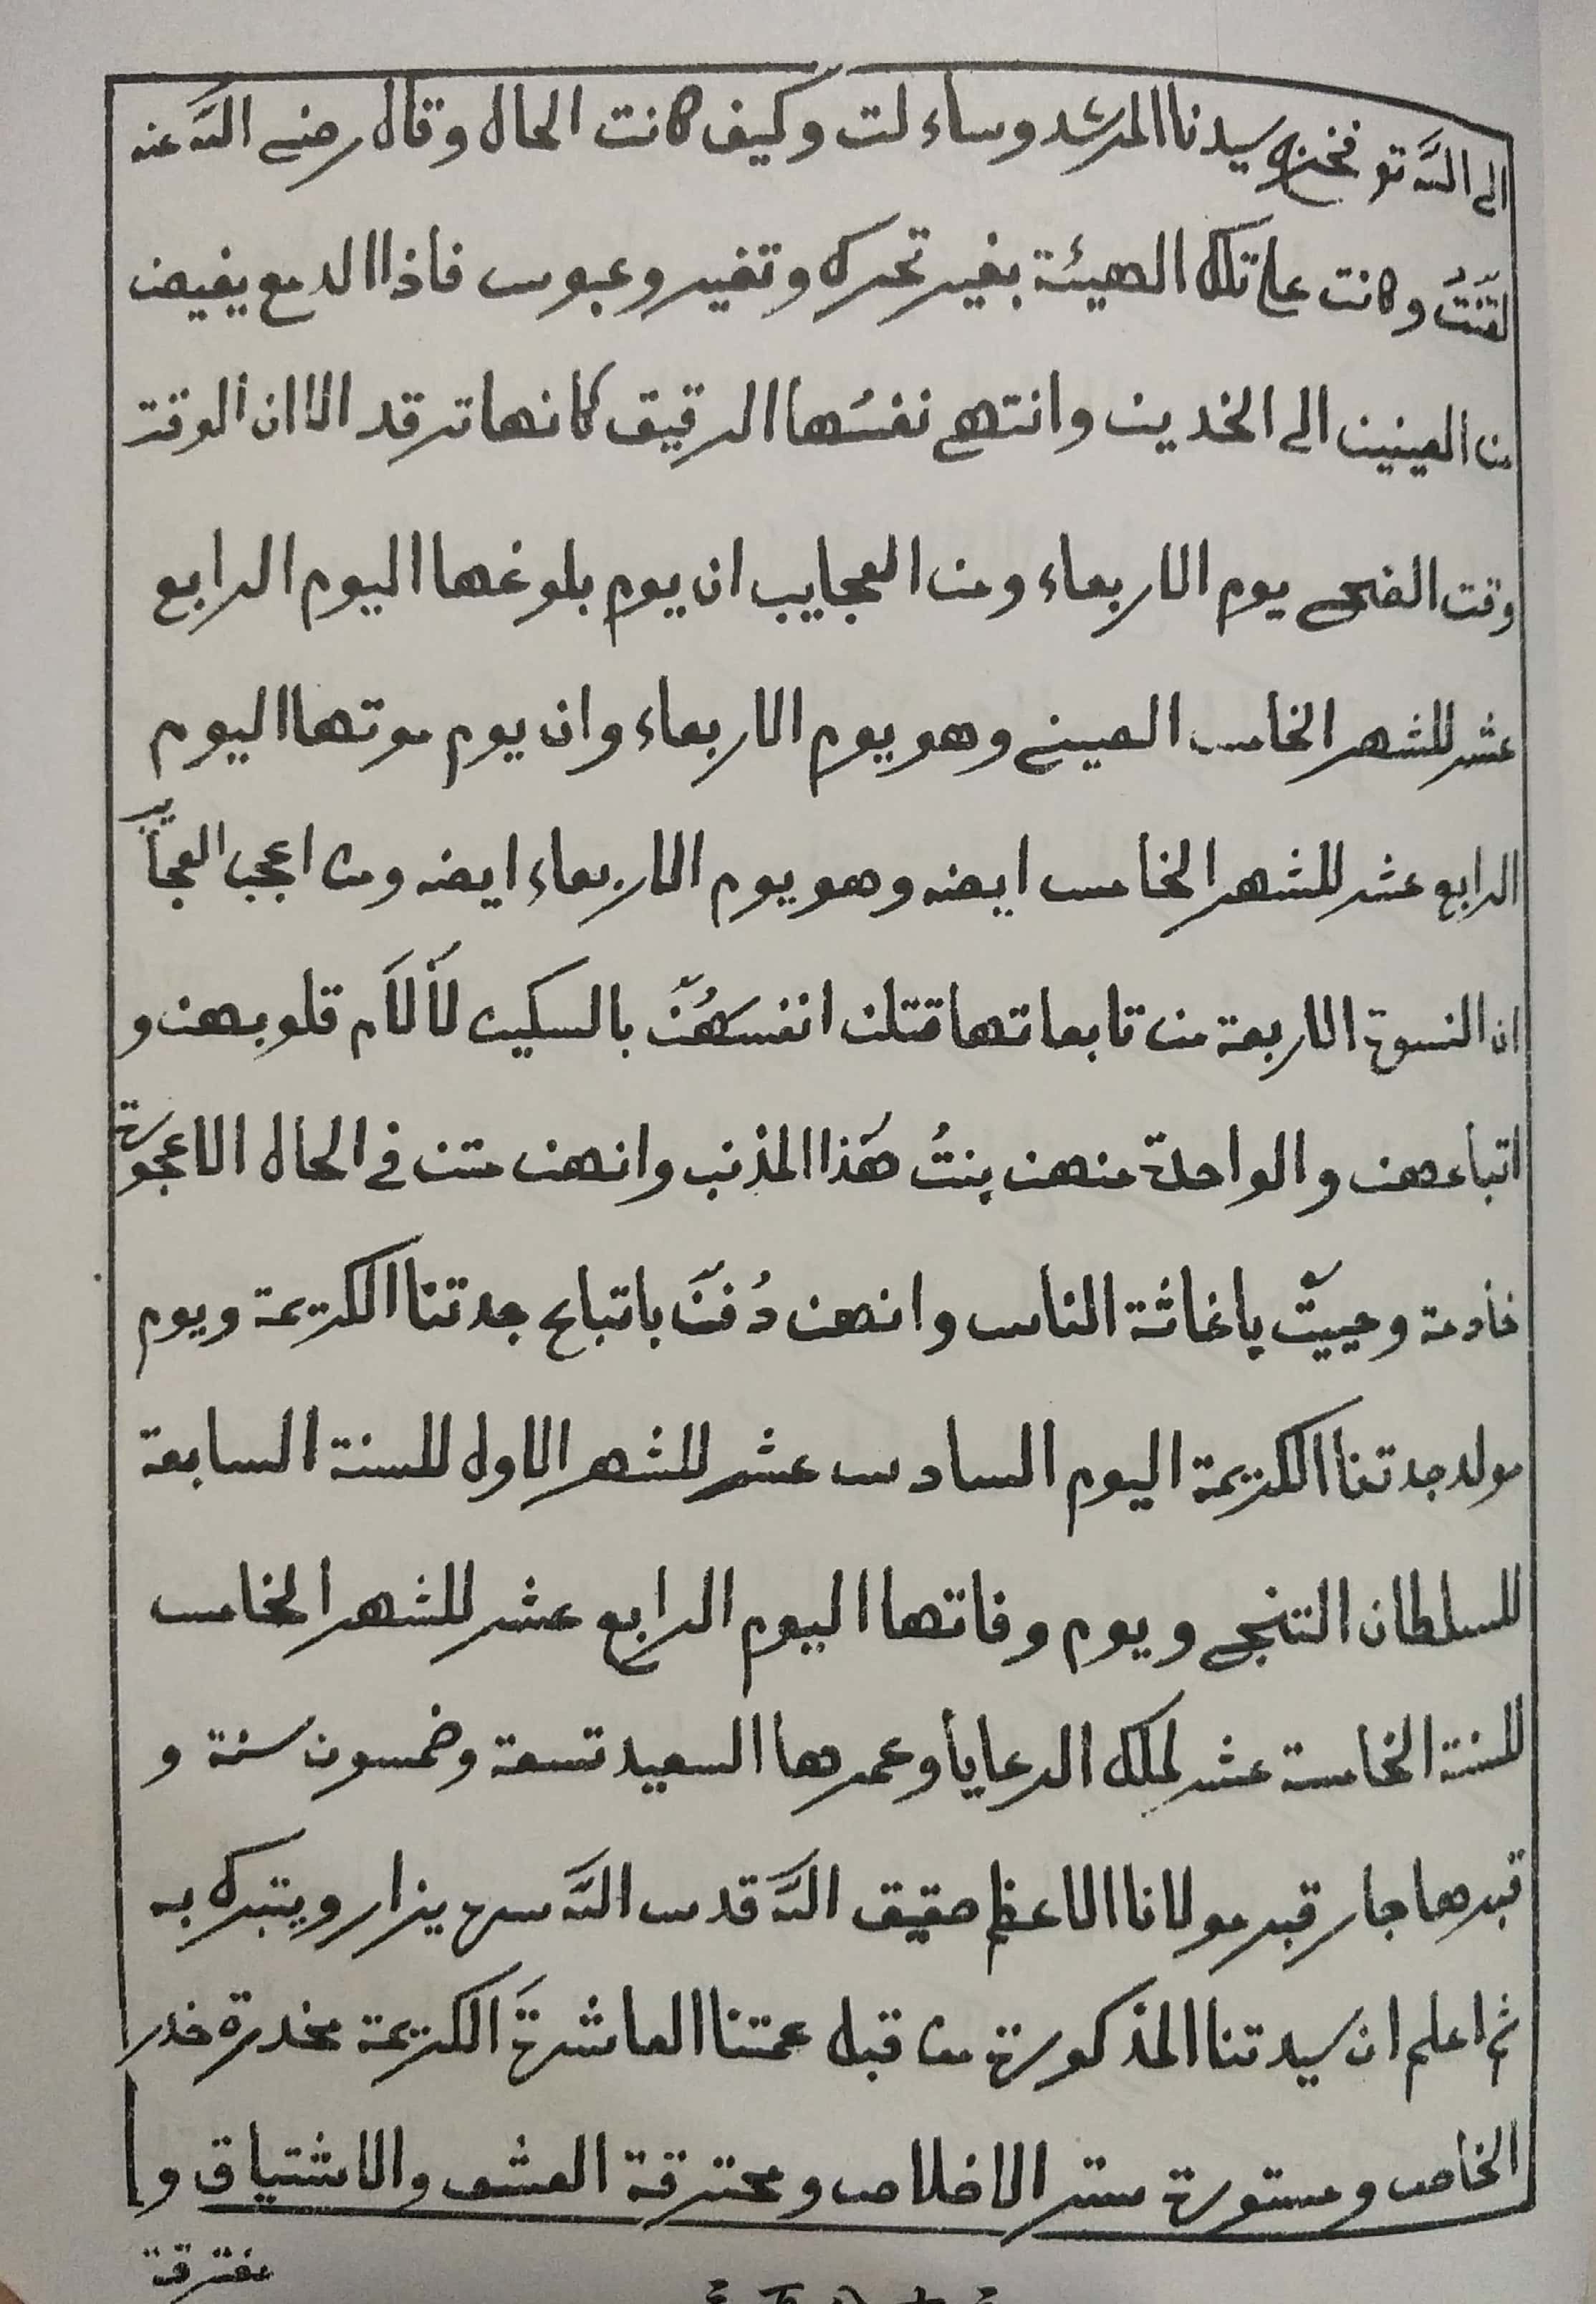 الى الله تو فخزه سيدنا المرشد وساءلت وكيف كانت الحال وقال رضى الله عنه
لقنتُ وكانت على تلك الهيئة بغير تحرك وتغير وعبوس فاذا الدمع يفيض
من العينين الى الخدين وانتهى نفسُها الرقيق كانها ترقد الا ان الوقت
وقت الضحى يوم الاربعاء ومن العجايب ان يوم بلوغها اليوم الرابع
عشر للشهر الخامس الصينى وهو يوم الاربعاء وان يوم موتها اليوم
الرابع عشر للشهر الخامس ايضه وهو يوم الاربعاء ايضه ومن اعجب العجايب
ان النسوة الاربعة من تابعاتها قتلن انفسهُنّ بالسكين لألآم قلوبهن و
اتباعهن والواحدة منهن بنتُ هَذا المذنب وانهن متن فى الحال الا عجوزة
خادمة وحييتْ باغاثة الناس وانهن دُفنّ باتباع جدتنا الكريمة ويوم
مولد جدتنا الكريمة اليوم السادس عشر للشهر الاول للسنة السابعة
للسلطان التنجى ويوم وفاتها اليوم الرابع عشر للشهر الخامس
للسنة الخامسة عشر لملك الرعايا وعمرها السعيد تسعة وخمسون سنة و
قبرها جار قبر مولانا الاعظم حقيق الله قدس الله سره يزار ويتبرك به
ثم اعلم ان سيدتنا المذكورة من قبل عمتنا العاشرةَ الكريمة مخدرة خدر
الخاص ومستورة ستر الاخلاص ومحترقة العشق والاشتياق و
مفترقة